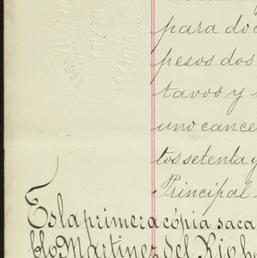 para do
pesos dos
tavos y
uno cance
tos setenta y
Principal
Es la primera cópia saca
blo Martinez del Rio h